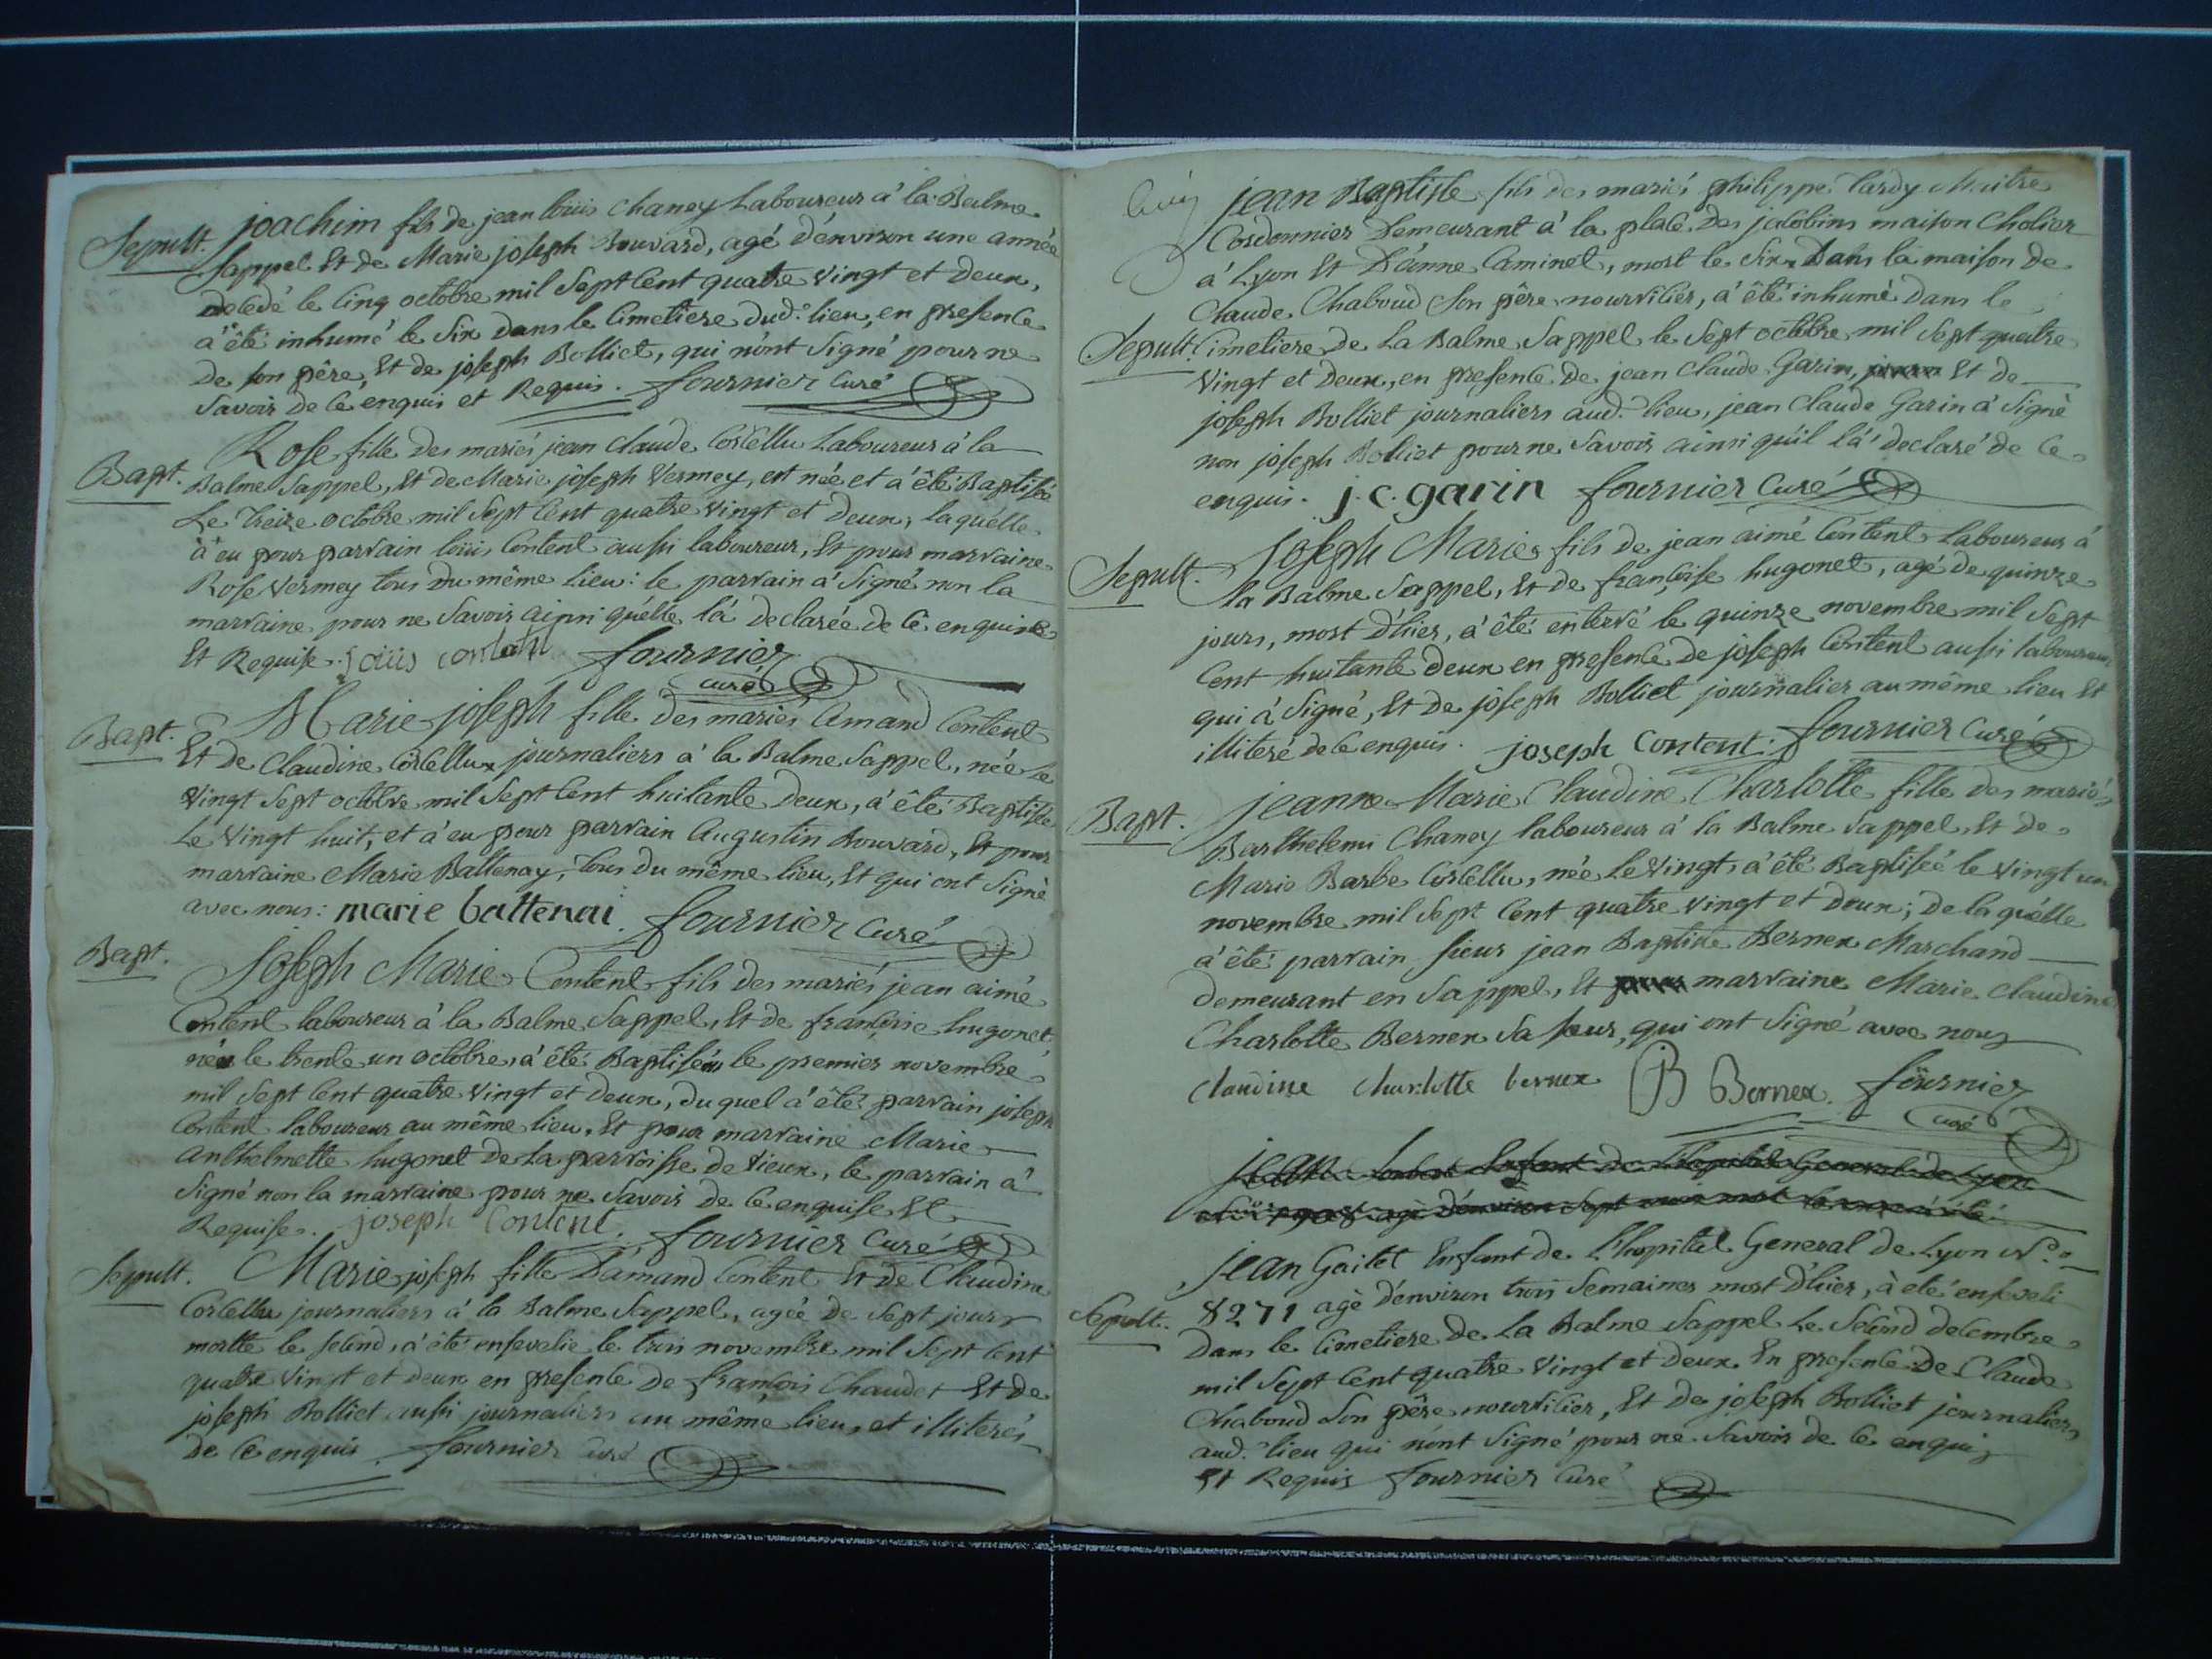 Sepult. joachim fils de jean loüis Chaney Laboureur à la Balme
Sappel Et de Marie joseph Bouvard, agé d'environ une année
decedé le cinq octobre mil Sept Cent quatre Vingt et Deux,
à été inhumé le Six Dans le Cimetiere dud.t lieu, en presence
De son père, Et de joseph Bolliet, qui n'ont Signé pour ne
Savoir de ce enquis et Requis. fournier Curé
Bapt. Rose fille des mariés jean claude Costellu Laboureur à la
Balme Sappel, Et de Marie joseph Vermey, est née et a été Baptisée
Le treize octobre mil Sept Cent quatre Vingt et Deux, laquélle
à eu pour parrain loüis Content aussi laboureur, Et pour marraine
Rose Vermey tous Du même Lieu: le parrain a Signé non la
marraine pour ne Savoir ainsi qu'élle l'à declarée de cé enquise
Et Requise. Loüis contant fournier
curé
Bapt. Marie joseph fille des mariés Amand Content
Et de Claudine Costellux journaliers à la Balme Sappel, née Le
Vingt Sept octobre mil Sept Cent huitante Deux, a été Baptisée
Le Vingt huit, et à eu pour parrain Augustin Bouvard, Et pour
marraine Marie Battenay, tous Du même lieu, Et qui ont Signé
avec nous: marie battenai. fournier Curé
Bapt. Joseph Marie Content fils des mariés jean aimé
Content laboureur à la Balme Sappel, Et de françoise hugonet
né le trente un octobre, a été Baptisé le premier novembre
mil Sept Cent quatre Vingt et Deux, duquel a été parrain joseph
Content laboureur au même lieu, Et pour marraine Marie
Anthelmette hugonet De La parroisse de Vieux, le parrain a
Signé non la marraine pour ne Savoir de ce enquise Et
Requise. joseph Content. fournier Curé
Sepult. Marie joseph fille D'amand Content Et de Claudine
Costellu journaliers à la Balme Sappel, agée de Sept jours
morte le second, a été ensevelie le trois novembre mil Sept Cent
quatre Vingt et deux en presence de françois Chaudet Et de
joseph Bolliet aussi journaliers au même lieu, et illiterés
de ce enquis. fournier Curé
jean Baptiste fils des mariés philippe tardy Maitre
Cordonnier Demeurant à la place Des jacobins maison Cholier
à Lyon Et D'anne Caminet, mort le Six Dans la maison de
Claude Chaboud Son père nourricier, a été inhumé Dans le
Sepult. Cimetiere de La Balme Sappel le Sept octobre mil Sept quatre
Vingt et Deux, en presence de jean Claude Garin, Et de
joseph Bolliet journaliers aud.t lieu, jean Claude Garin a Signé
non joseph Bolliet pour ne Savoir ainsi qu'il l'a declaré de ce
enquis. j.c. garin fournier Curé
Sepult. Joseph Marie fils de jean aimé Content Laboureur à
la Balme Sappel, Et de françoise hugonet, agé de quinze
jours, mort D'hier, a été enterré le quinze novembre mil Sept
Cent huitante deux en presence de joseph Content aussi laboureur
qui a Signé, Et de joseph Bolliet journalier au même lieu Et
illiteré de ce enquis. joseph Content. fournier Curé
Bapt. jeanne Marie Claudine Charlotte fille des mariés
Barthelemi Chaney laboureur à la Balme Sappel, Et de
Marie Barbe Costellu, née Le Vingt, a été Baptisée le Vingt un
novembre mil Sept Cent quatre Vingt et deux; de laquélle
a été parrain sieur jean Baptiste Bernex Marchand
demeurant en Sappel, Et marraine Marie Claudine
Charlotte Bernex Sa soeur, qui ont Signé avec nous
Claudine Charlotte bernex JB Bernex. fournier
curé
jean Enfant de l'hopital General de Lyon
agé d'environ Sept
jean Gaitet Enfant de L'hopital General de Lyon N.o
Sepult. 8271 agé d'environ trois Semaines mort D'hier, à été enseveli
Dans le Cimetiere de La Balme Sappel Le Second decembre
mil Sept Cent quatre Vingt et Deux. En presence De Claude
Chaboud Son père nourricier, Et de joseph Bolliet journaliers
aud.t lieu qui n'ont Signé pour ne Savoir de ce enquis
Et Requis fournier Curé